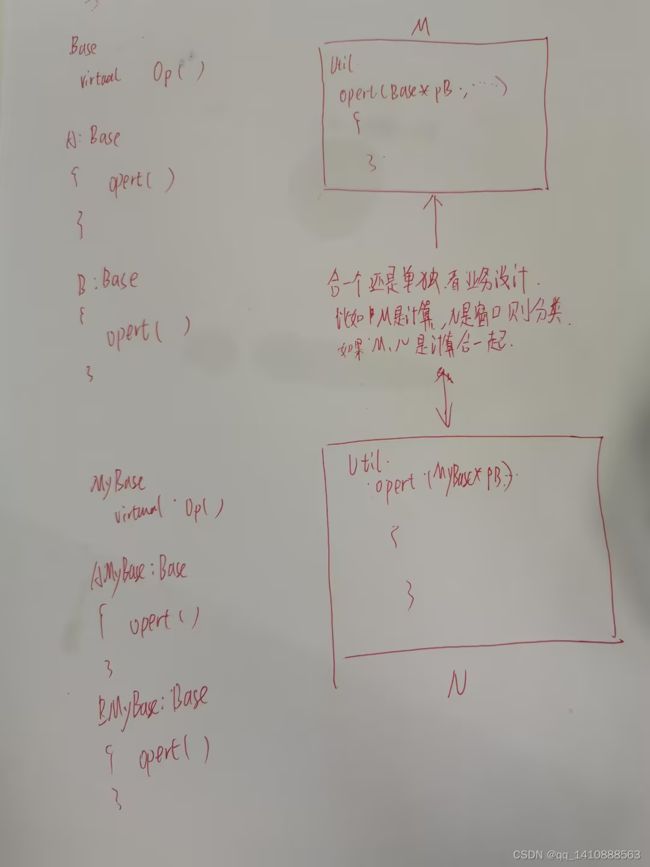 Base
virtual Op( )
A: Base
{ opert( )
}
B: Base
{
opert( )
}
MyBase
virtual Op( )
AMyBase: Base
{ opert( )
}
BMyBase: Base
{ opert( )
}
M
Util
opert(Base* pB, ·····)
{
}
合一个还是单独.看业务设计.
比如 M是计算,N是窗口则分类.
如果M、N是计算合一起.
Util.
opert (MyBase* pB.)
{
}
N
CSDN @qq_1410888563